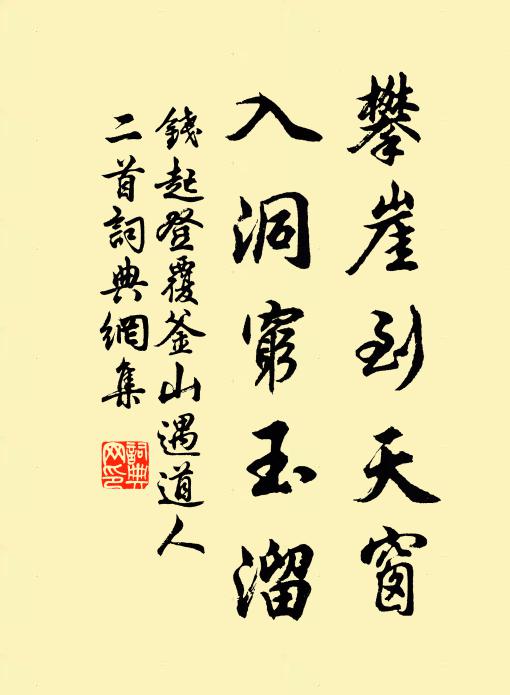 攀崖到天窗
入洞窮玉溜
錢起登覆釜山遇道人
二首詞典網集
詞典
网印